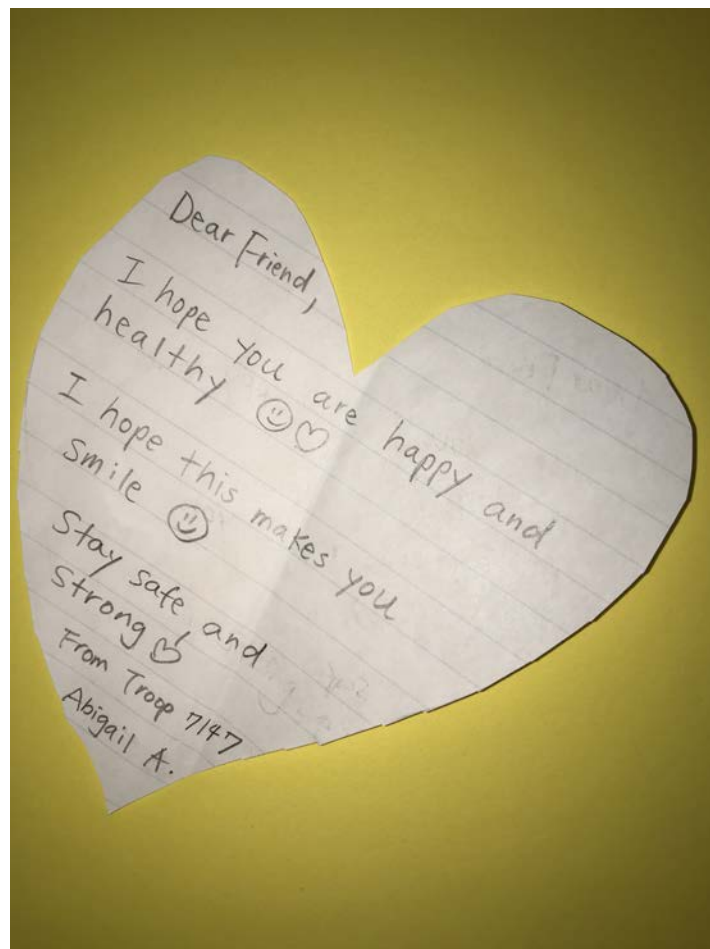 Dear Friend,
I hope you are happy and
healthy ☺♡
I hope this makes you
smile ☺
Stay safe and
strong ♡
From Troop 7147
Abigail A.